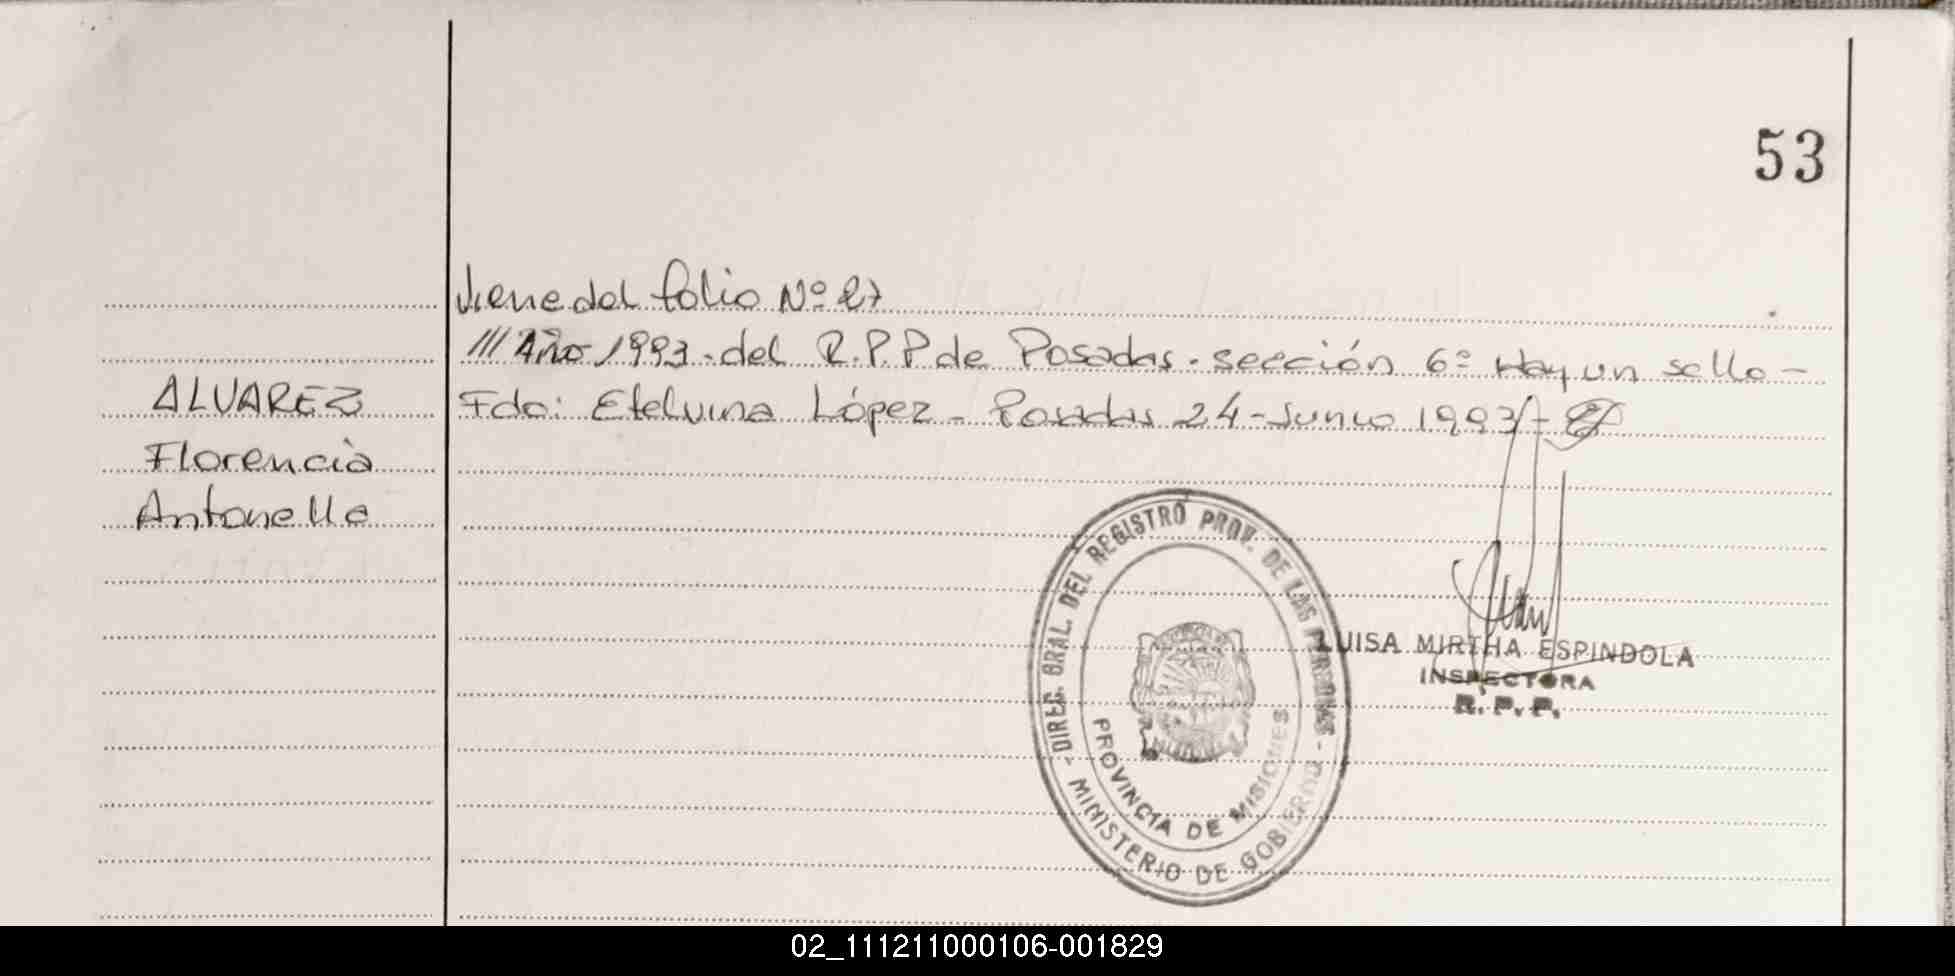 53
Viene del folio Nº 27
/// Año 1993 - del R.P.P de Posadas - sección 6º Hay un sello -
ALVAREZ
Fdo: Etelvina López - Posadas 24 - Junio 1993 -
Florencia
Antonella
- DIREC. GRAL. DEL REGISTRO PROV. DE LAS PERSONAS -
MINISTERIO DE GOBIERNO
PROVINCIA DE MISIONES
LUISA MIRTHA ESPINDOLA
INSPECTORA
R. P. P.
02_111211000106-001829